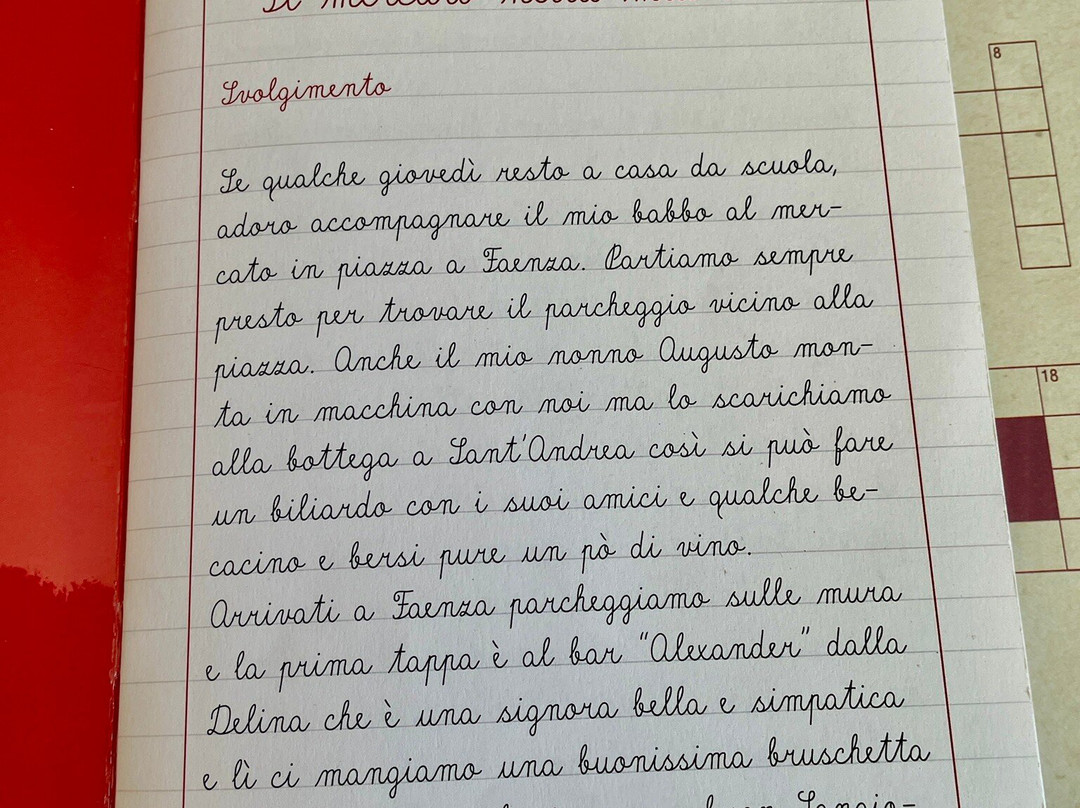 Il mercato
Svolgimento
Se qualche giovedì resto a casa da scuola,
adoro accompagnare il mio babbo al mer-
cato in piazza a Faenza. Partiamo sempre
presto per trovare il parcheggio vicino alla
piazza. Anche il mio nonno Augusto mon-
ta in macchina con noi ma lo scarichiamo
alla bottega a Sant'Andrea così si può fare
un biliardo con i suoi amici e qualche be-
cacino e bersi pure un pò di vino.
Arrivati a Faenza parcheggiamo sulle mura
e la prima tappa è al bar "Alexander" dalla
Delina che è una signora bella e simpatica
e lì ci mangiamo una buonissima bruschetta
8
18